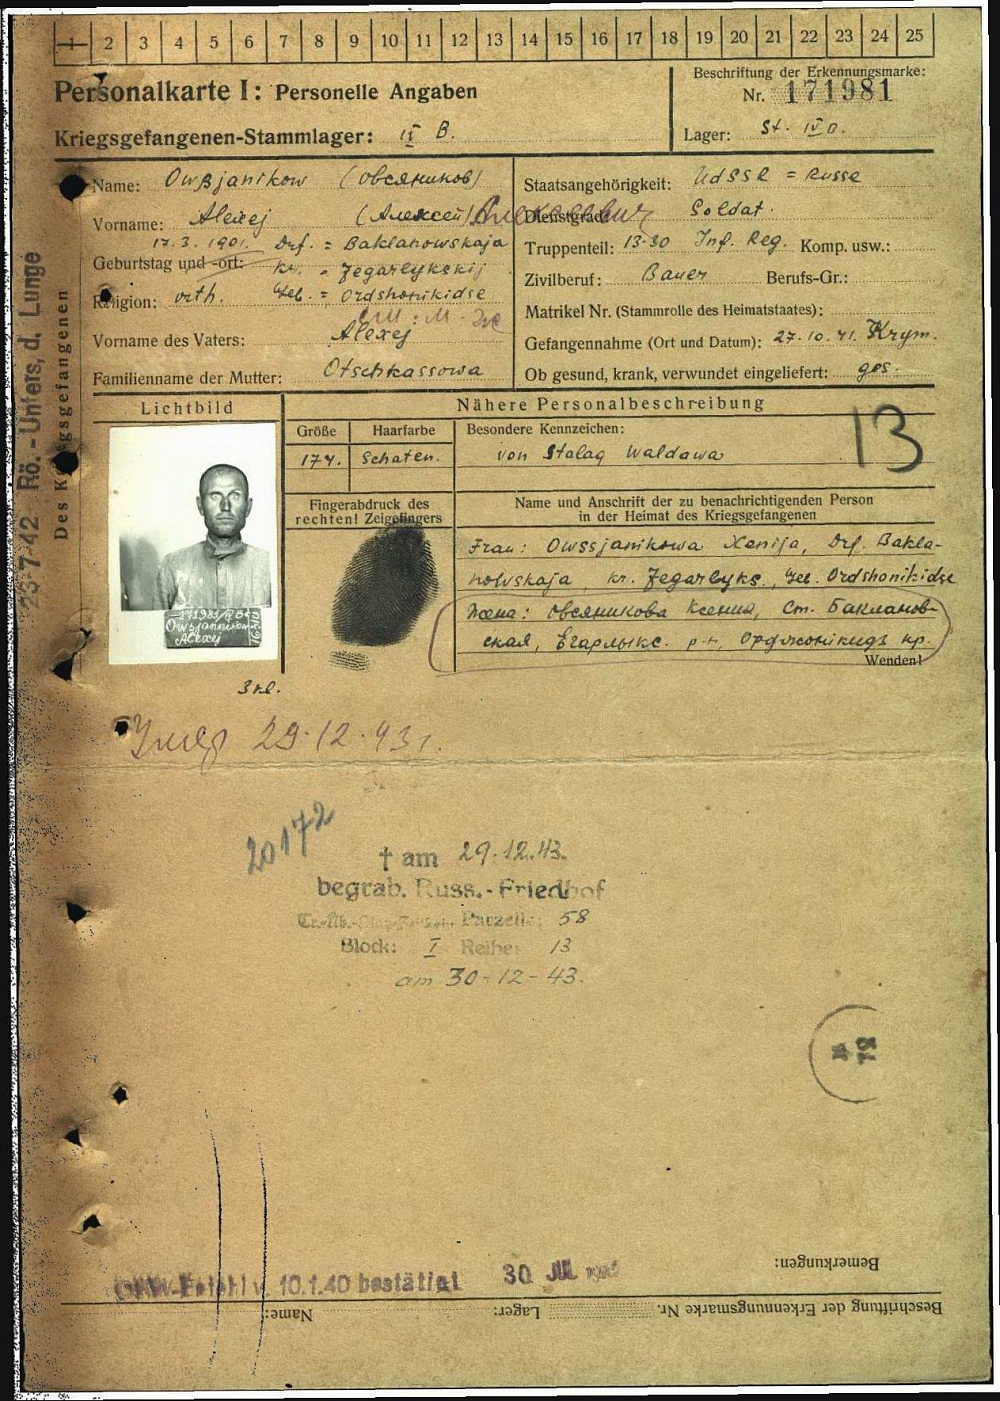 1 2 3 4 5 6 7 8 9 10 11 12 13 14 15 16 17 18 19 20 21 22 23 24 25
Personalkarte I: Personelle Angaben
Kriegsgefangenen-Stammlager: IV B.
Beschriftung der Erkennungsmarke:
Nr. 171981
Lager: St. IV B.
Name: Owßjanikow (Овсяников)
Vorname: Alexej (Алексей) Алексеевич
17.3.1901. Drf. = Baklanowskaja
Geburtstag und -ort: kr. = Jegarlykskij
Religion: orth. Geb. = Ordshonikidse
Vorname des Vaters: Alexej
Familienname der Mutter: Otschkassowa
Staatsangehörigkeit: UdSSR = Russe
Dienstgrad: Soldat.
Truppenteil: 13-30 Inf. Reg. Komp. usw.:
Zivilberuf: Bauer Berufs-Gr.:
Matrikel Nr. (Stammrolle des Heimatstaates):
Gefangennahme (Ort und Datum): 27.10.41. Krym.
Ob gesund, krank, verwundet eingeliefert: ges.
Des Kriegsgefangenen
23.7.42 Rö.-Unters. d. Lunge
Lichtbild
171981/IV B
Owsjannikow
Alexej
Nähere Personalbeschreibung
Größe Haarfarbe Besondere Kennzeichen:
174. Schaten. von Stalag Waldawa
13
Fingerabdruck des
rechten! Zeigefingers
Name und Anschrift der zu benachrichtigenden Person
in der Heimat des Kriegsgefangenen
Frau: Owssjanikowa Xenija, Drf. Bakla-
nowskaja, kr. Jegarlyks., Geb. Ordshonikidse
Жена: Овсяникова Ксения, ст. Бакланов-
ская, Егарлыкс. р-н, Орджоникидз кр.
Wenden!
Умер 29.12.43г.
20172
† am 29.12.43.
begrab. Russ.-Friedhof
Parzelle: 58
Block: I Reihe: 13
am 30-12-43.
Bemerkungen:
OKW-Befehl v. 10.1.40 bestätigt 30 JUL
Beschriftung der Erkennungsmarke Nr. Lager: Name: